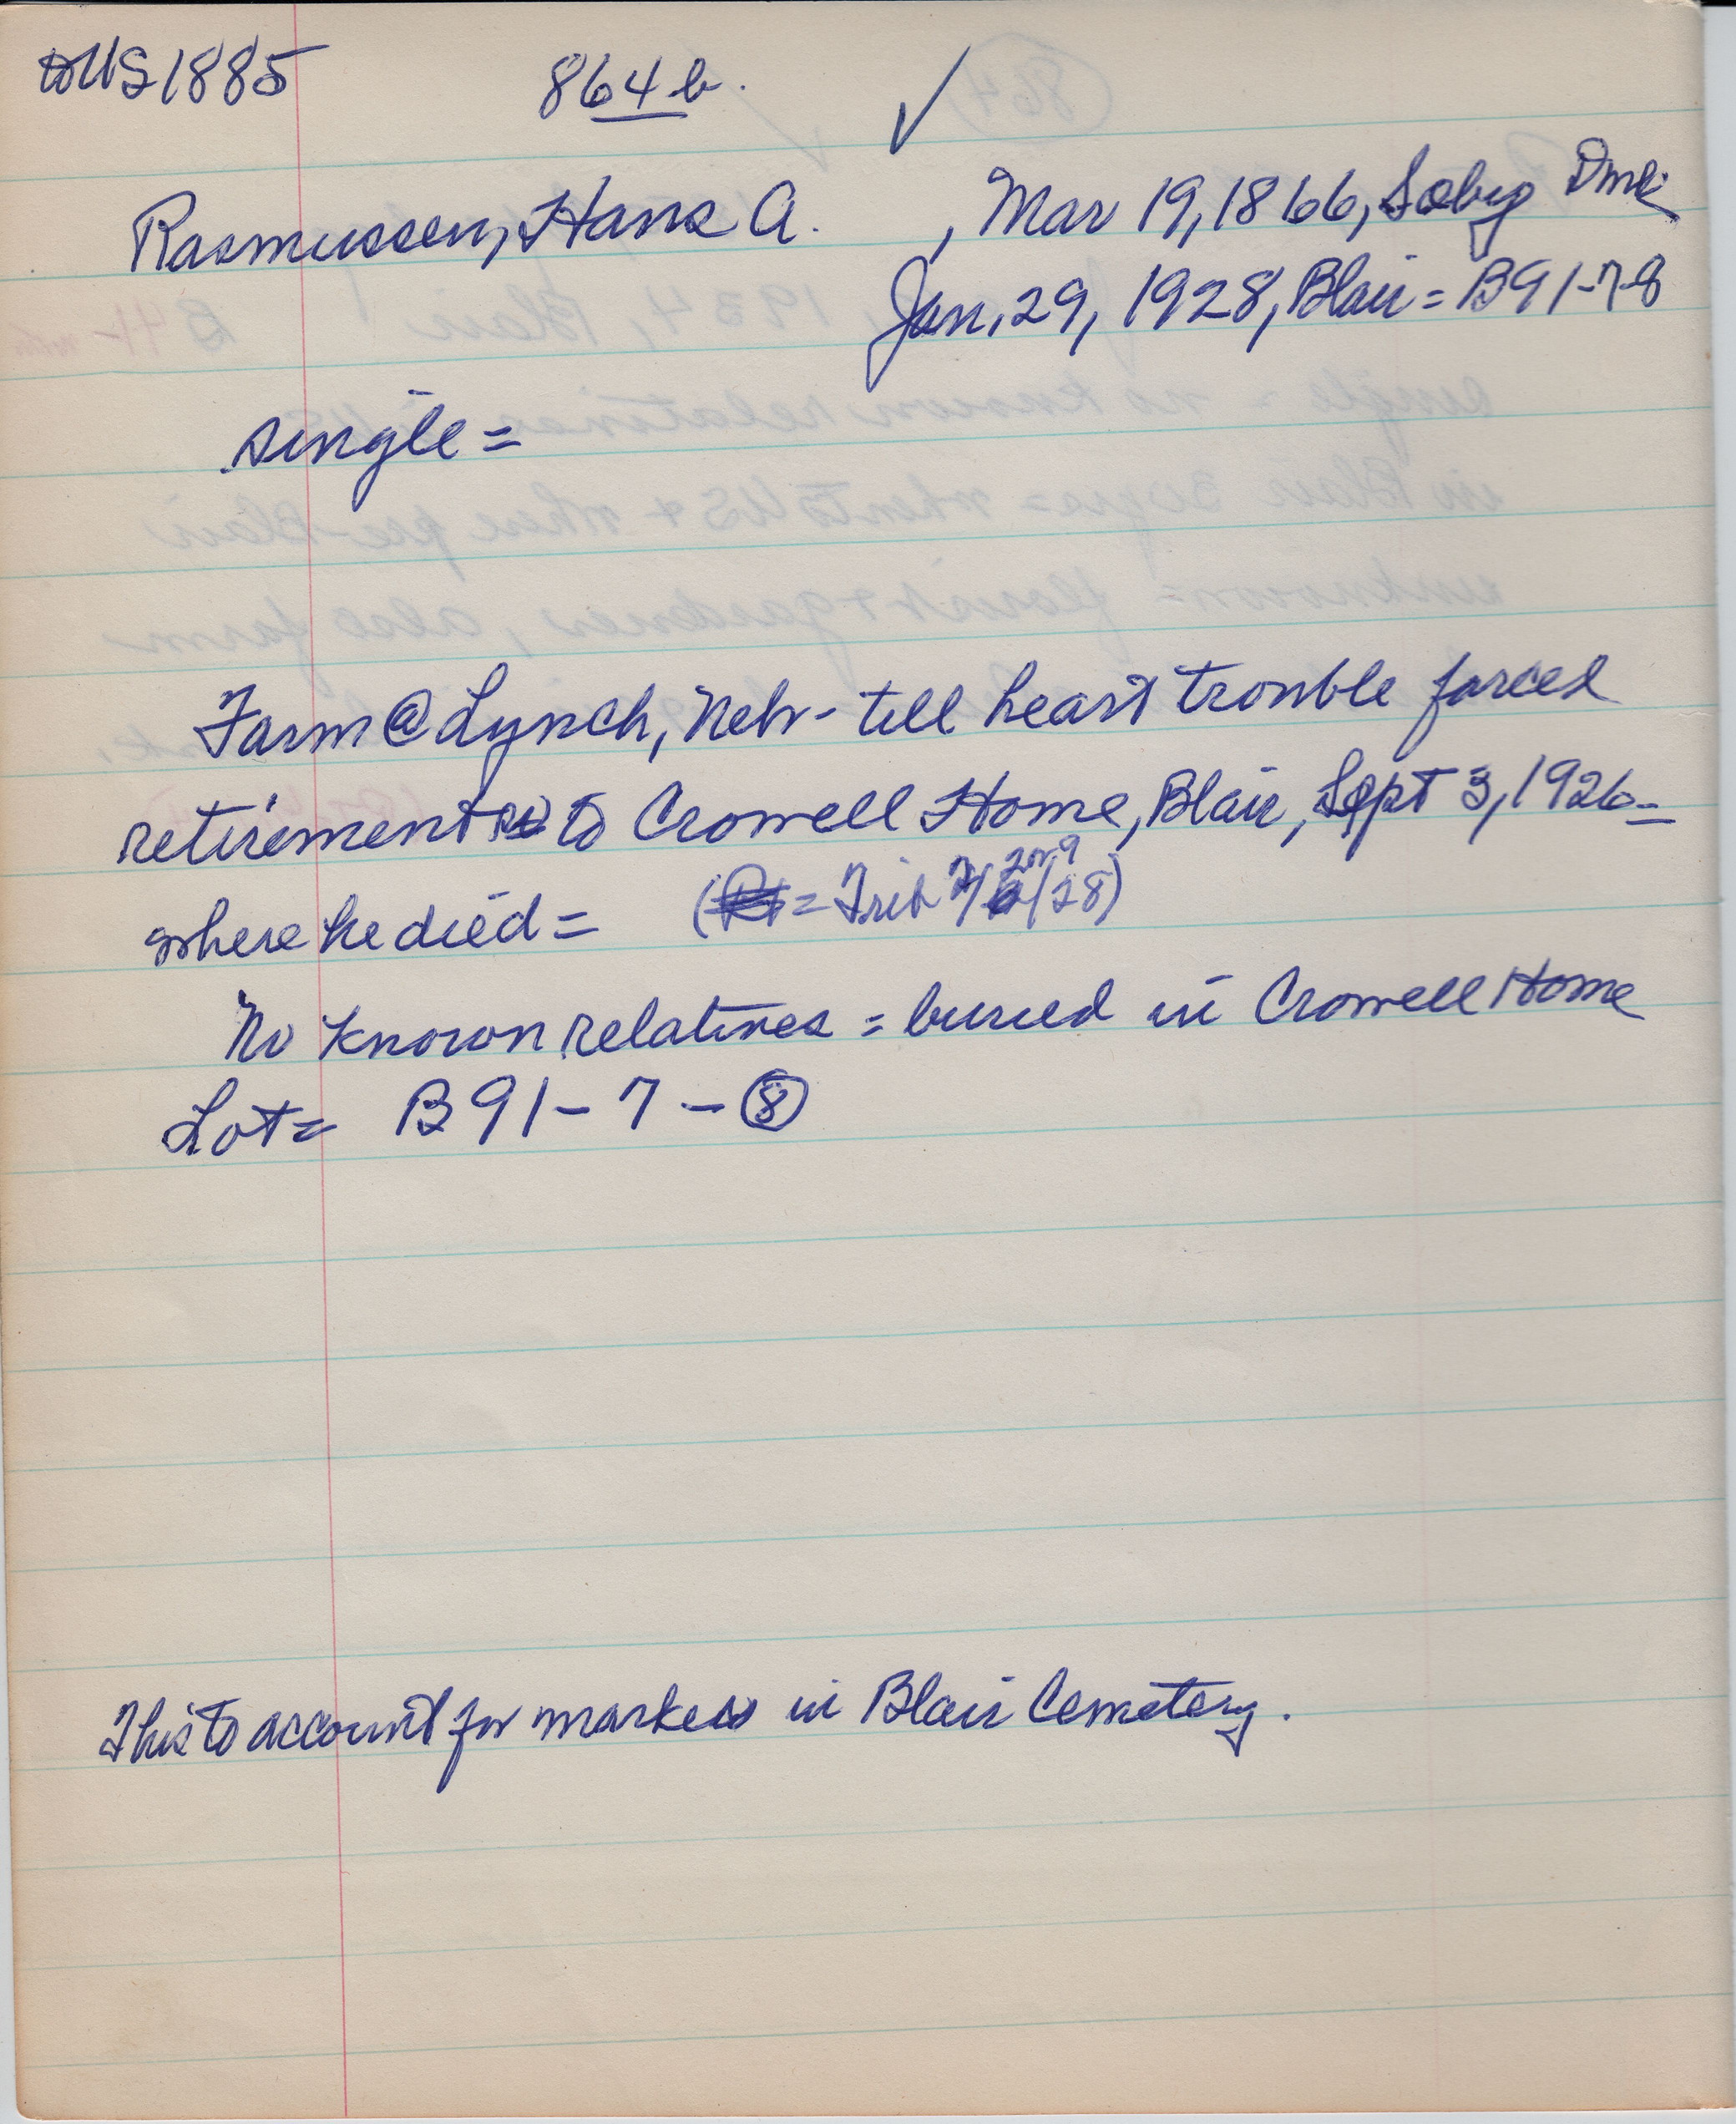 to US 1885 864b. ✓
Rasmussen, Hans A. , Mar 19, 1866, Soby Dmk
Jan. 29, 1928, Blair = B91-7-8
single =
Farm @ Lynch, Nebr - till heart trouble forced
retirement to Crowell Home, Blair, Sept 3, 1926 -
where he died = ( = Trib 2/2 or 9/28)
No known relatives = buried in Crowell Home
Lot = B91-7-8
This to account for markers in Blair Cemetery.